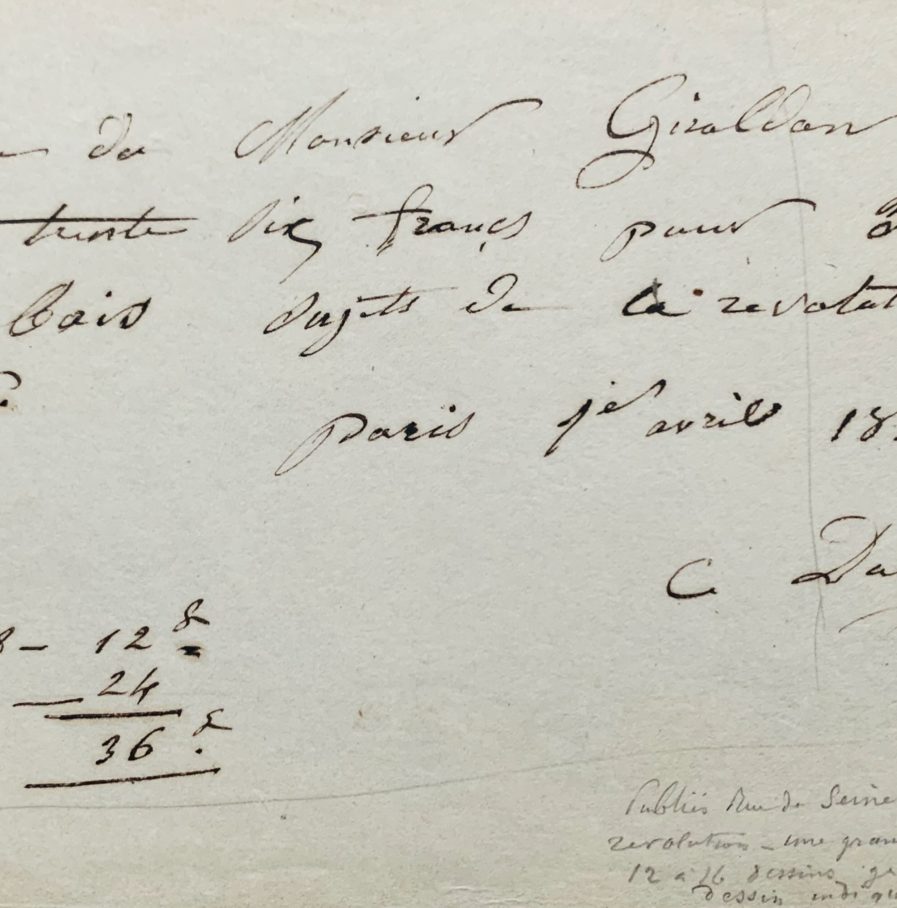 du Monsieur Giraldon
trente six francs pour
bois sujets de la revolut
paris 1er avril 18
C Da
8 – 12 f
24
36 f.
Publiés Rue de Seine
revolution – une gran
12 à 16 dessins
dessin indiqu